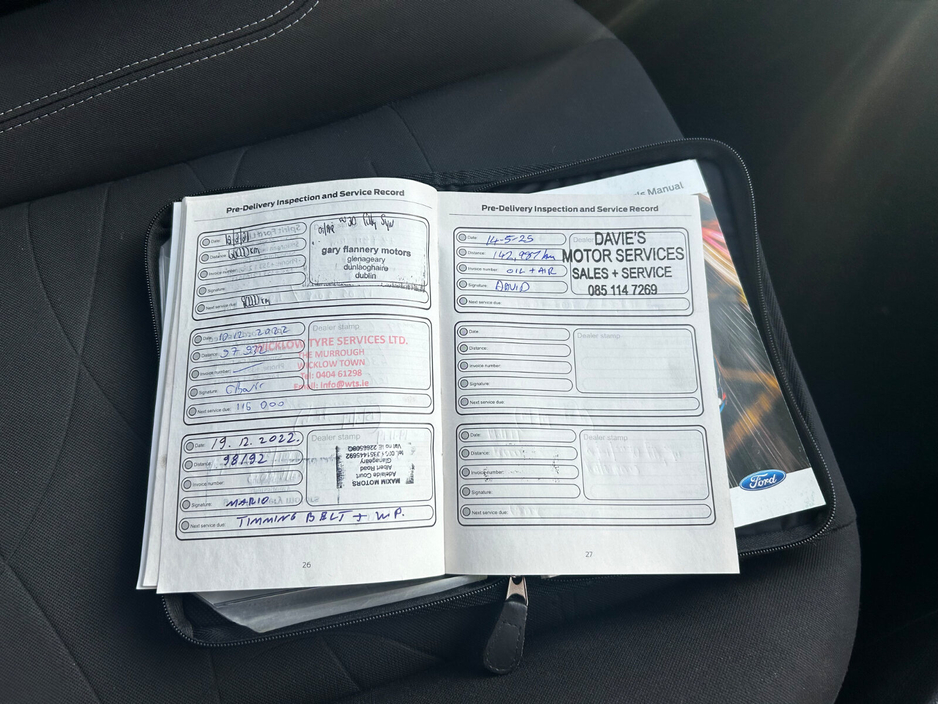 Pre-Delivery Inspection and Service Record
Date:
Distance: km
Invoice number:
Signature:
Next service due: km
gary flannery motors
glenageary
dunlaoghaire
dublin
Date: 10-12-2022
Distance:
Invoice number:
Signature:
Next service due: 115 000
Dealer stamp
WICKLOW TYRE SERVICES LTD.
THE MURROUGH
WICKLOW TOWN
Tel: 0404 61298
Email: info@wts.ie
Date: 19.12.2022.
Distance: 98192
Invoice number:
Signature: MARIO
Next service due: TIMMING BELT + W.P.
Dealer stamp
MAXIM MOTORS
Adelaide Court
Albert Road
Glenageary
26
Pre-Delivery Inspection and Service Record
Date: 14-5-25
Distance: 142,987 km
Invoice number: OIL + AIR
Signature: DAVID
Next service due:
DAVIE'S
MOTOR SERVICES
SALES + SERVICE
085 114 7269
Date:
Distance:
Invoice number:
Signature:
Next service due:
Dealer stamp
Date:
Distance:
Invoice number:
Signature:
Next service due:
Dealer stamp
27
Manual
Ford